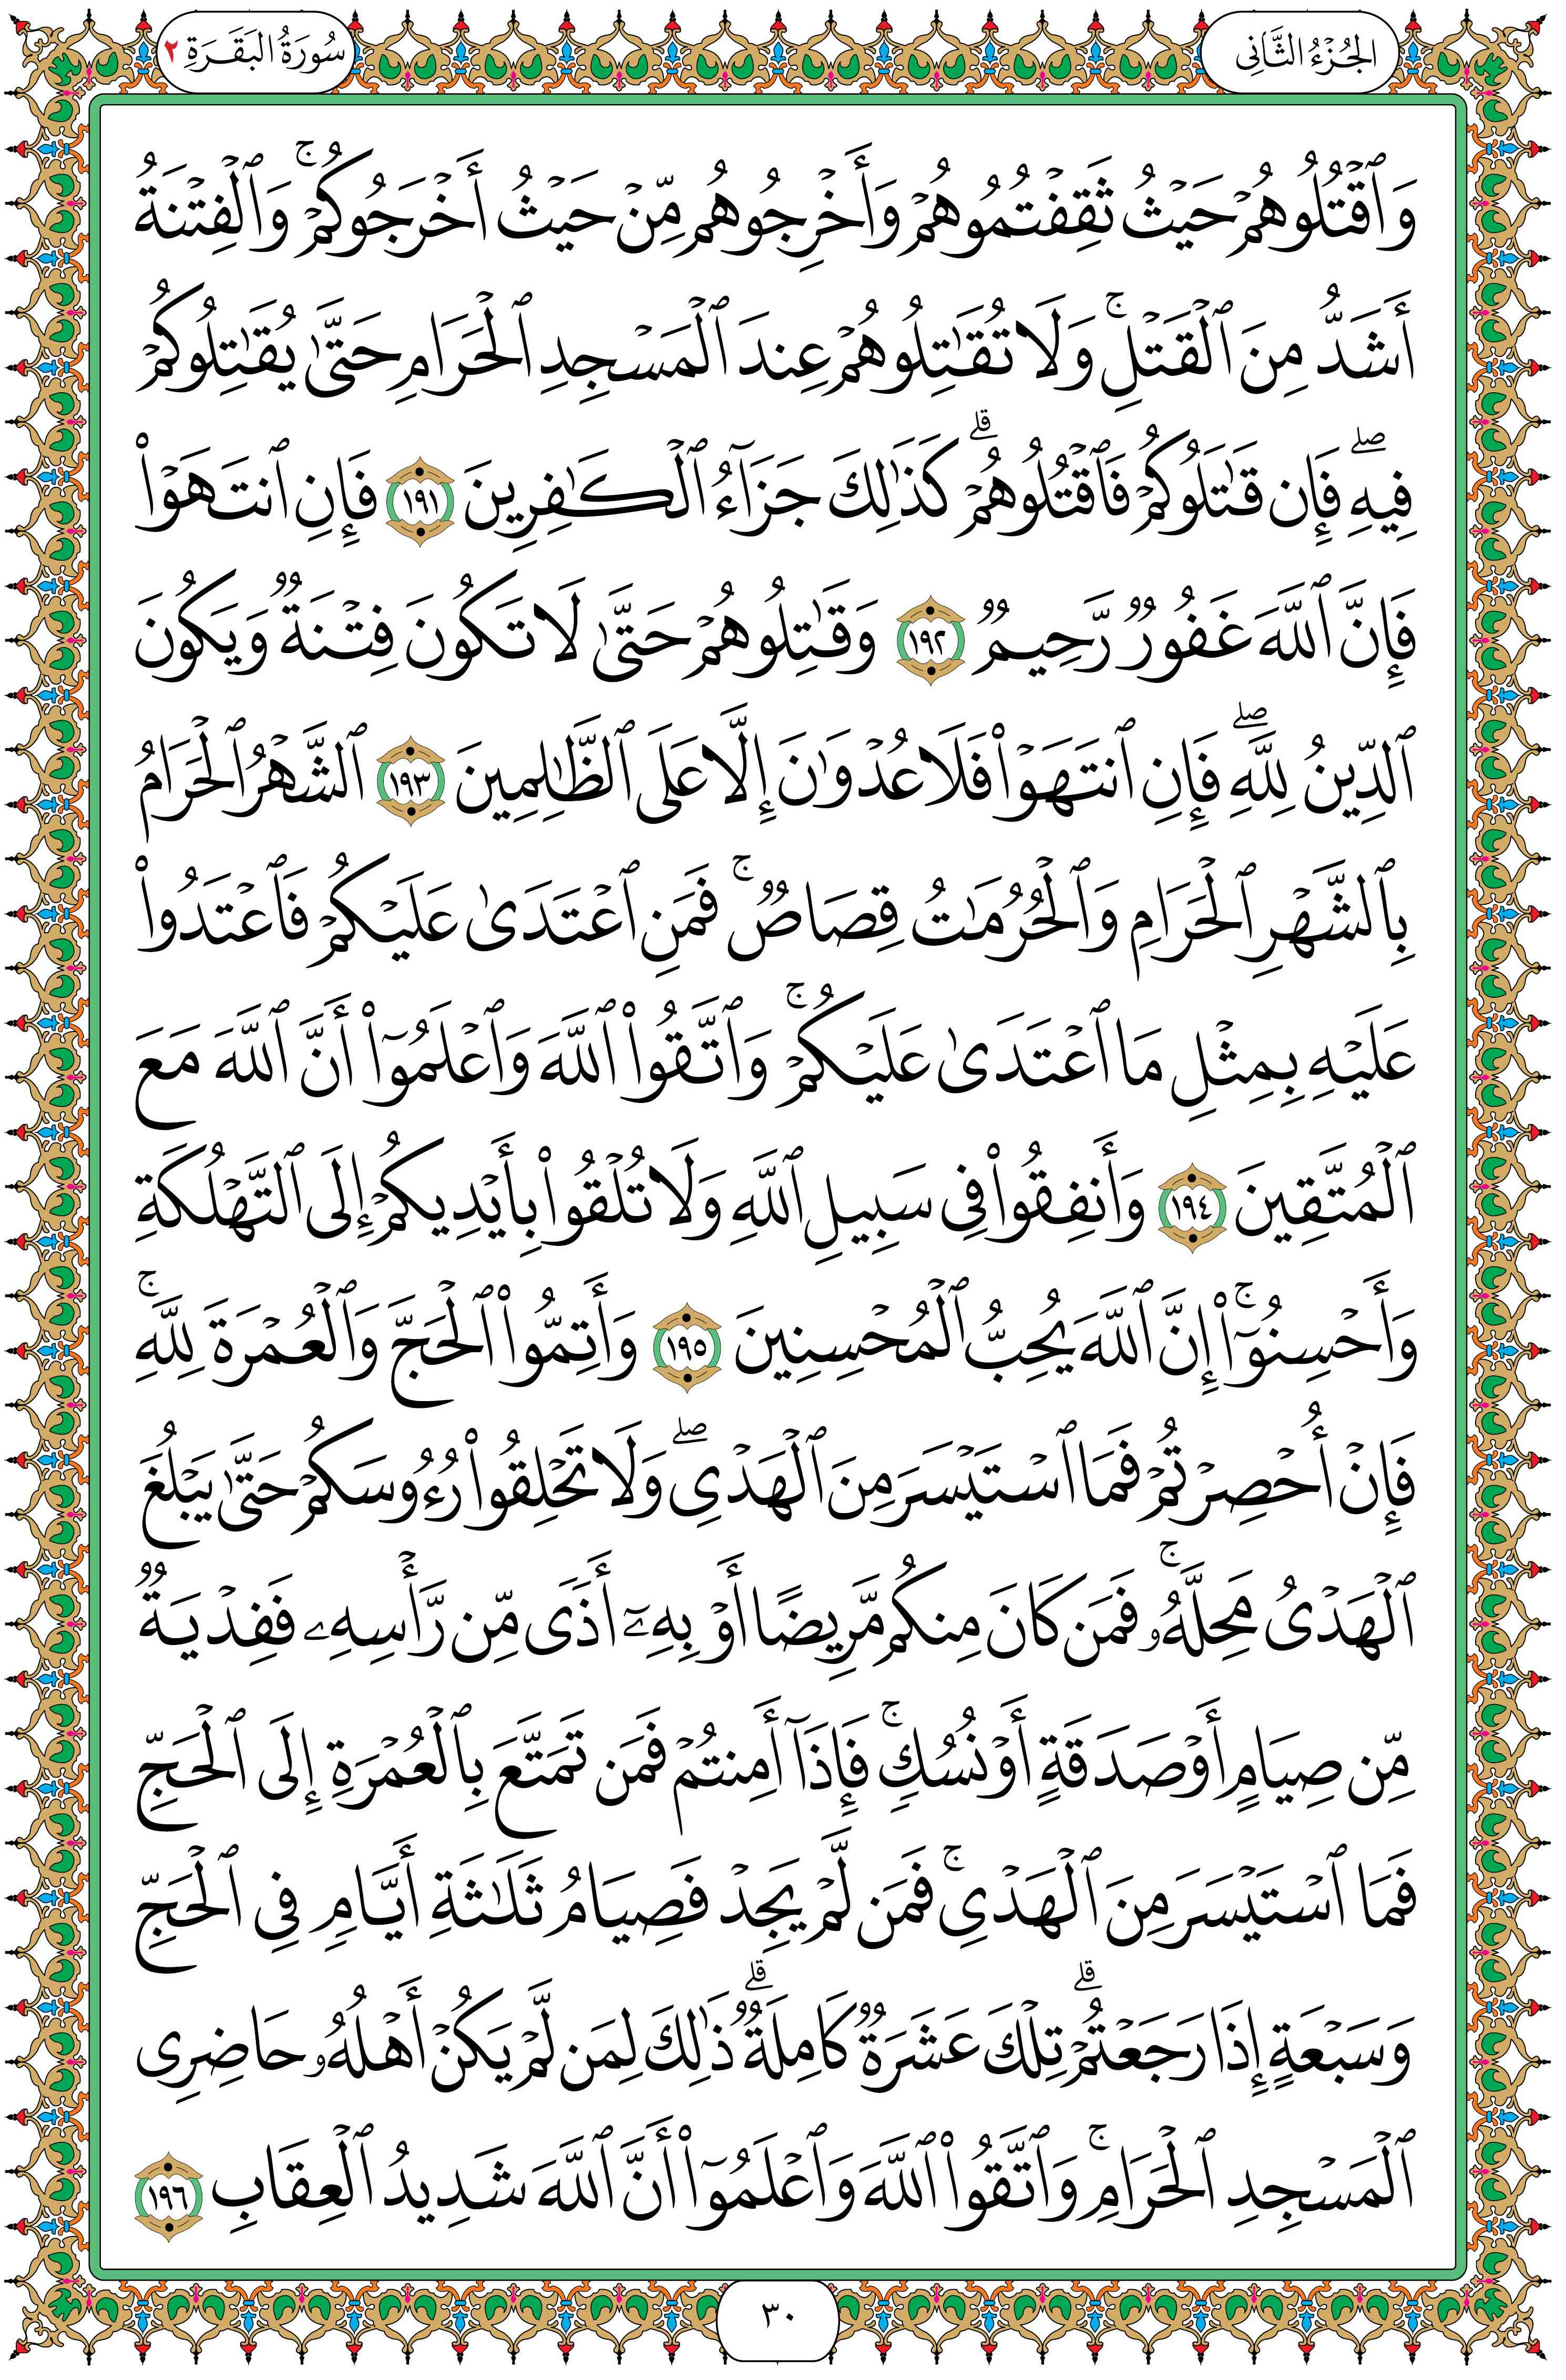 الجُزْءُ الثَّانِى
سُورَةُ البَقَرَةِ ٢
وَٱقْتُلُوهُمْ حَيْثُ ثَقِفْتُمُوهُمْ وَأَخْرِجُوهُم مِّنْ حَيْثُ أَخْرَجُوكُمْ ۚ وَٱلْفِتْنَةُ
أَشَدُّ مِنَ ٱلْقَتْلِ ۚ وَلَا تُقَٰتِلُوهُمْ عِندَ ٱلْمَسْجِدِ ٱلْحَرَامِ حَتَّىٰ يُقَٰتِلُوكُمْ
فِيهِ ۖ فَإِن قَٰتَلُوكُمْ فَٱقْتُلُوهُمْ ۗ كَذَٰلِكَ جَزَآءُ ٱلْكَٰفِرِينَ ١٩١ فَإِنِ ٱنتَهَوْا۟
فَإِنَّ ٱللَّهَ غَفُورٌ رَّحِيمٌ ١٩٢ وَقَٰتِلُوهُمْ حَتَّىٰ لَا تَكُونَ فِتْنَةٌ وَيَكُونَ
ٱلدِّينُ لِلَّهِ ۖ فَإِنِ ٱنتَهَوْا۟ فَلَا عُدْوَٰنَ إِلَّا عَلَى ٱلظَّٰلِمِينَ ١٩٣ ٱلشَّهْرُ ٱلْحَرَامُ
بِٱلشَّهْرِ ٱلْحَرَامِ وَٱلْحُرُمَٰتُ قِصَاصٌ ۚ فَمَنِ ٱعْتَدَىٰ عَلَيْكُمْ فَٱعْتَدُوا۟
عَلَيْهِ بِمِثْلِ مَا ٱعْتَدَىٰ عَلَيْكُمْ ۚ وَٱتَّقُوا۟ ٱللَّهَ وَٱعْلَمُوٓا۟ أَنَّ ٱللَّهَ مَعَ
ٱلْمُتَّقِينَ ١٩٤ وَأَنفِقُوا۟ فِى سَبِيلِ ٱللَّهِ وَلَا تُلْقُوا۟ بِأَيْدِيكُمْ إِلَى ٱلتَّهْلُكَةِ
وَأَحْسِنُوٓا۟ ۚ إِنَّ ٱللَّهَ يُحِبُّ ٱلْمُحْسِنِينَ ١٩٥ وَأَتِمُّوا۟ ٱلْحَجَّ وَٱلْعُمْرَةَ لِلَّهِ ۚ
فَإِنْ أُحْصِرْتُمْ فَمَا ٱسْتَيْسَرَ مِنَ ٱلْهَدْىِ ۖ وَلَا تَحْلِقُوا۟ رُءُوسَكُمْ حَتَّىٰ يَبْلُغَ
ٱلْهَدْىُ مَحِلَّهُۥ ۚ فَمَن كَانَ مِنكُم مَّرِيضًا أَوْ بِهِۦٓ أَذًى مِّن رَّأْسِهِۦ فَفِدْيَةٌ
مِّن صِيَامٍ أَوْ صَدَقَةٍ أَوْ نُسُكٍ ۚ فَإِذَآ أَمِنتُمْ فَمَن تَمَتَّعَ بِٱلْعُمْرَةِ إِلَى ٱلْحَجِّ
فَمَا ٱسْتَيْسَرَ مِنَ ٱلْهَدْىِ ۚ فَمَن لَّمْ يَجِدْ فَصِيَامُ ثَلَٰثَةِ أَيَّامٍ فِى ٱلْحَجِّ
وَسَبْعَةٍ إِذَا رَجَعْتُمْ ۗ تِلْكَ عَشَرَةٌ كَامِلَةٌ ۗ ذَٰلِكَ لِمَن لَّمْ يَكُنْ أَهْلُهُۥ حَاضِرِى
ٱلْمَسْجِدِ ٱلْحَرَامِ ۚ وَٱتَّقُوا۟ ٱللَّهَ وَٱعْلَمُوٓا۟ أَنَّ ٱللَّهَ شَدِيدُ ٱلْعِقَابِ ١٩٦
٣٠